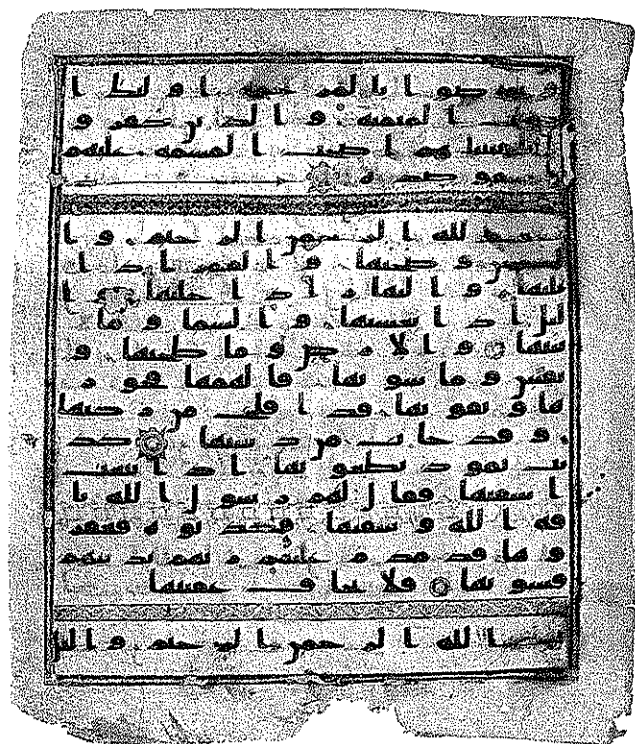 و تواصوا بالمرحمه اولئك ا
صحب الميمنه والذين كفرو
ا بايتنا هم اصحب المشمه عليهم
نار موصده
بسم الله الرحمن الرحيم وا
لشمس وضحيها والقمر اذا
تليها والنهار اذا جليها وا
ليل اذا يغشيها والسما وما
بنيها والارض وما طحيها و
نفس وما سويها فالهمها فجور
ها وتقويها قد افلح من زكيها
وقد خاب من دسيها كذ
بت ثمود بطغويها اذ انبعث
اشقيها فقال لهم رسول الله نا
قه الله وسقيها فكذبوه فعقر
وها فدمدم عليهم ربهم بذنبهم
فسويها فلا يخاف عقبيها
بسم الله الرحمن الرحيم واليل